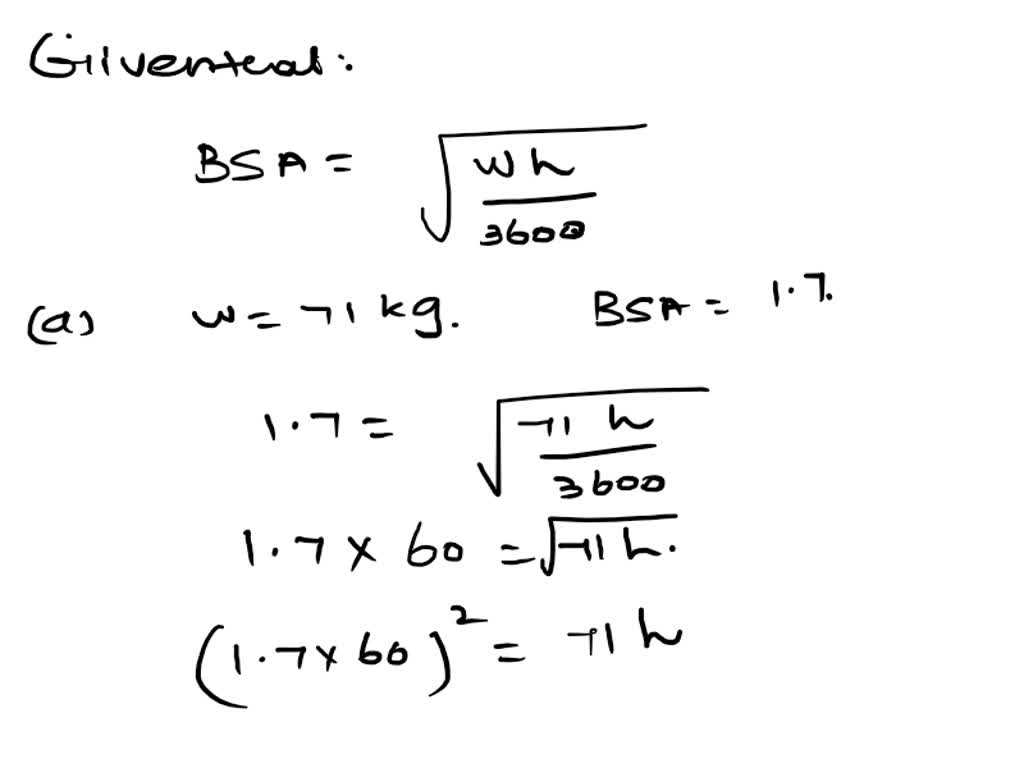 Given that:
BSA = √(wh/3600)
(a) w = 71 kg. BSA = 1.7.
1.7 = √(71 h/3600)
1.7 × 60 = √71 h.
(1.7 × 60)² = 71 h